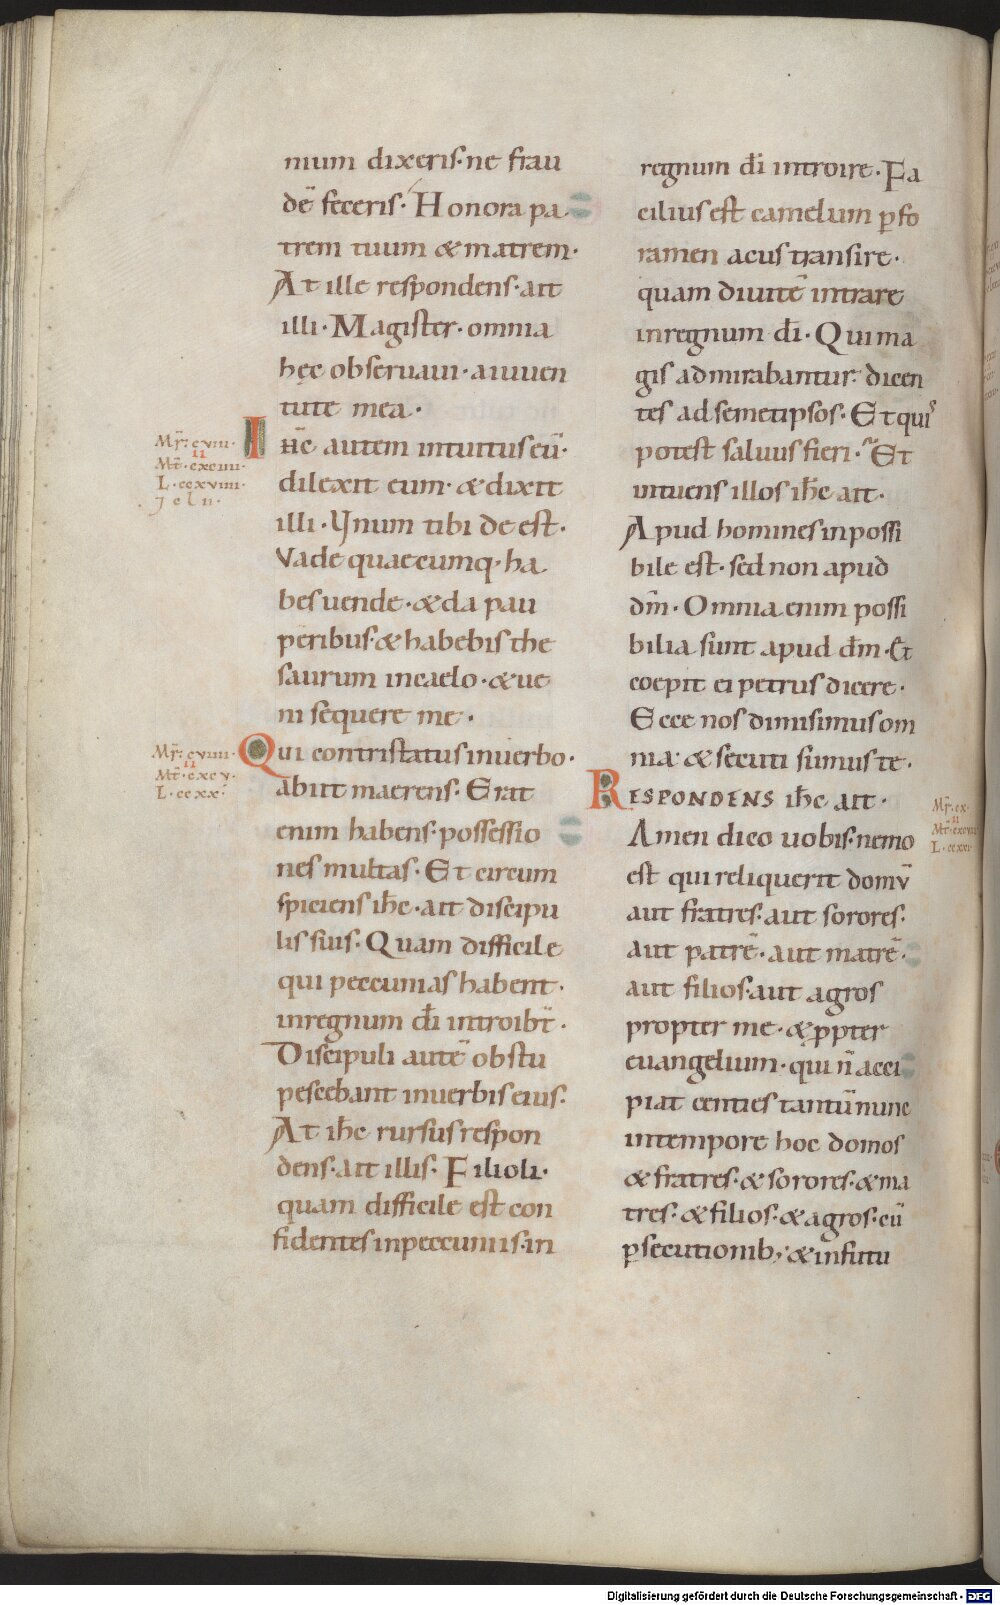 nium dixeris· ne frau
dē feceris· Honora pa
trem tuum & matrem·
At ille respondens· ait
illi· Magister· omnia
hęc observaui· a iuuen
tute mea·
Iħc autem intuitus eū·
dilexit eum· & dixit
illi· Vnum tibi de est·
Vade quaecumq· ha
bes uende· & da pau
peribus· & habebis the
saurum in caelo· & ue
ni sequere me·
Qui contristatus in uerbo·
abiit maerens· Erat
enim habens possessio
nes multas· Et circum
spiciens ih̄c· ait discipu
lis suis· Quam difficile
qui peccunias habent·
in regnum dī introibt̄·
Discipuli autē obstu
pescebant in uerbis eius·
At ih̄c rursus respon
dens· ait illis· Filioli·
quam difficile est con
fidentes in peccuniis· in
Mr̄· cviiii·
II
Mt̄· cxciiii·
L· ccxviiii·
Mr̄· cviiii·
II
Mt̄· cxcv·
L· ccxx·
regnum dī introire· Fa
cilius est camelum p̱ fo
ramen acus transire·
quam diuitē intrare
in regnum dī· Qui ma
gis admirabantur· dicen
tes ad semetipsos· Et quis
potest saluus fieri· Et
intuens illos ih̄c ait·
Apud homines inpossi
bile est· sed non apud
dm̄· Omnia enim possi
bilia sunt apud dm̄· Et
coepit ei petrus dicere·
Ecce nos dimisimus om
nia· & secuti sumus te·
RESPONDENS ih̄c ait·
Amen dico uobis· nemo
est qui reliquerit domū
aut fratres· aut sorores·
aut patrē· aut matrē·
aut filios· aut agros
propter me· & p̱pter
euangelium· qui n̄ acci
piat centies tantū nunc
in tempore hoc domos
& fratres· & sorores· & ma
tres· & filios· & agros· cū
p̱secutionib; & in futu
Mr̄· cx·
II
L· ccxxi·
Digitalisierung gefördert durch die Deutsche Forschungsgemeinschaft · DFG